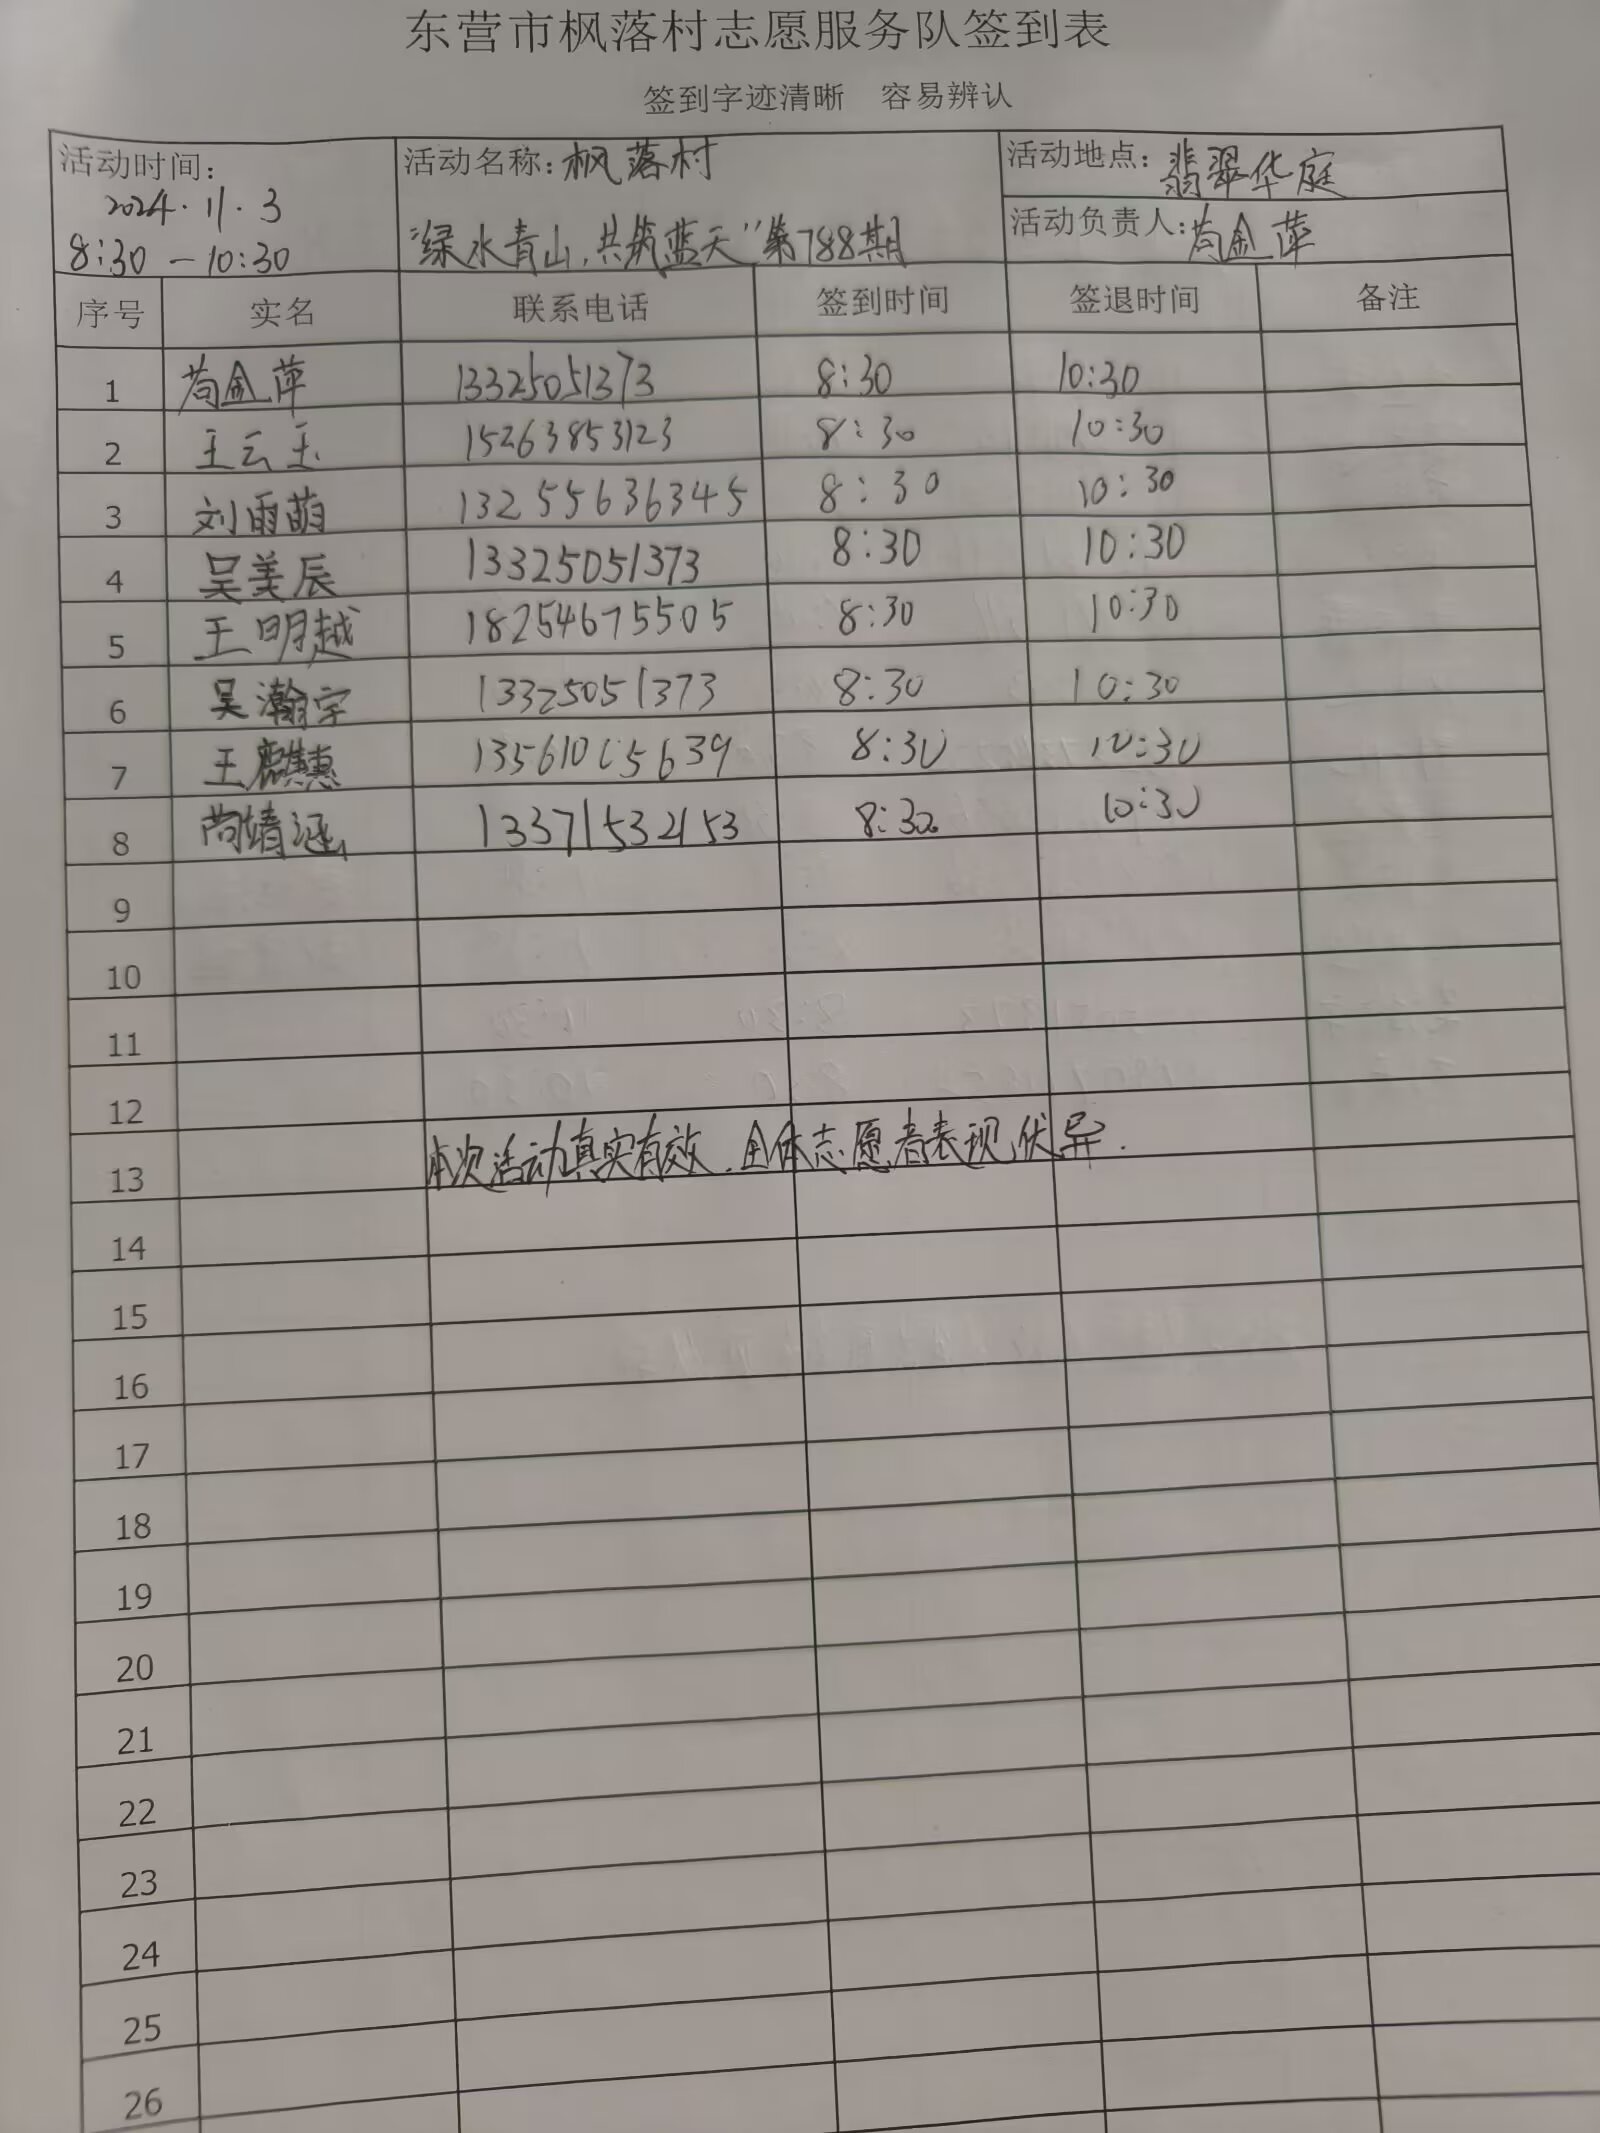 东营市枫落村志愿服务队签到表
签到字迹清晰 容易辨认
活动时间: 2024.11.3 8:30-10:30
活动名称: 枫落村 "绿水青山,共筑蓝天"第788期
活动地点: 翡翠华庭
活动负责人: 苟金萍
序号 实名 联系电话 签到时间 签退时间 备注
1 苟金萍 13325051373 8:30 10:30
2 王云玉 15263853123 8:30 10:30
3 刘雨萌 13255636345 8:30 10:30
4 吴美辰 13325051373 8:30 10:30
5 王明越 18254675505 8:30 10:30
6 吴瀚宇 13325051373 8:30 10:30
7 王麒惠 13561005639 8:30 10:30
8 苟靖涵 13371532153 8:30 10:30
9
10
11
12
13 本次活动真实有效.全体志愿者表现优异.
14
15
16
17
18
19
20
21
22
23
24
25
26